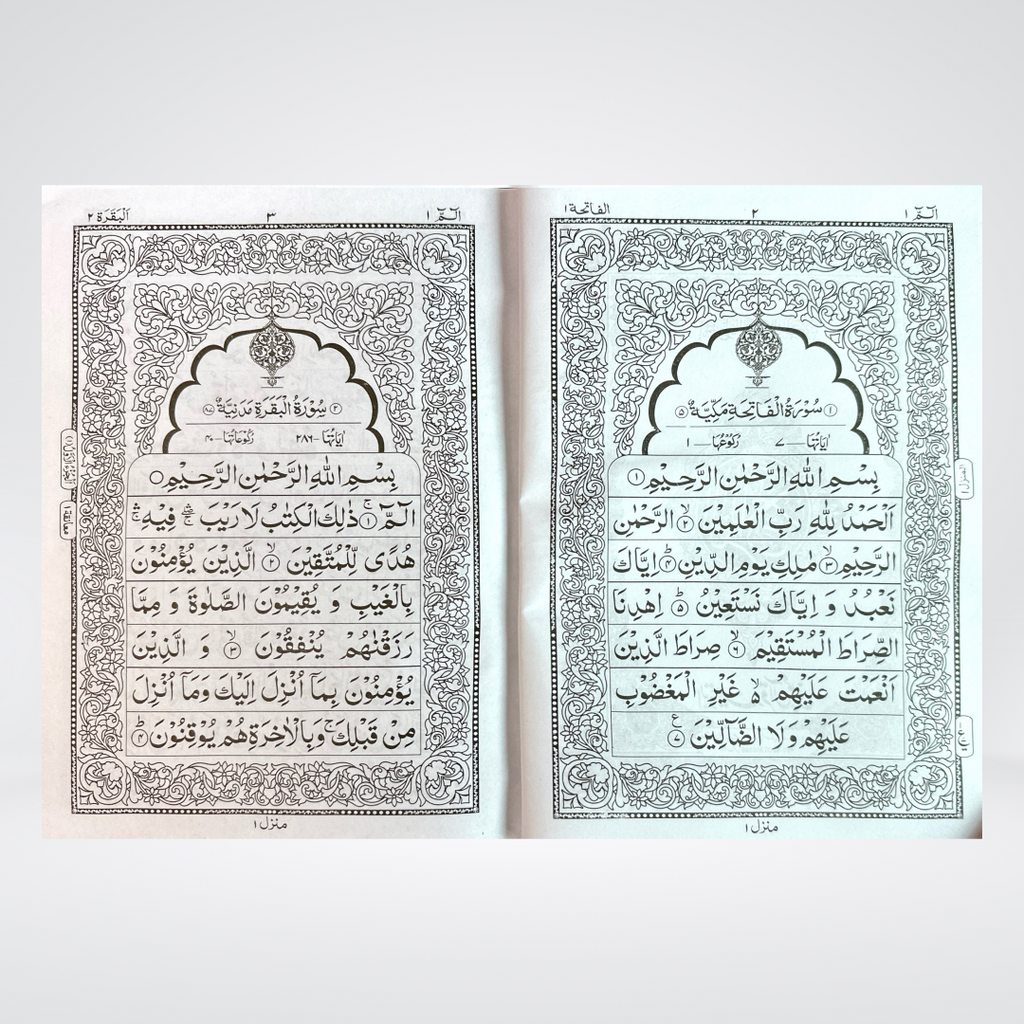 الٓمّٓ ١
٢
الفاتحة ١
١ سُوْرَةُ الْفَاتِحَةِ مَكِّيَّةٌ ٥
اٰيَاتُهَا — ٧ رُكُوْعُهَا — ١
بِسْمِ اللّٰهِ الرَّحْمٰنِ الرَّحِيْمِ ١
اَلْحَمْدُ لِلّٰهِ رَبِّ الْعٰلَمِيْنَ ٢ الرَّحْمٰنِ
الرَّحِيْمِ ٣ مٰلِكِ يَوْمِ الدِّيْنِ ٤ اِيَّاكَ
نَعْبُدُ وَ اِيَّاكَ نَسْتَعِيْنُ ٥ اِهْدِنَا
الصِّرَاطَ الْمُسْتَقِيْمَ ٦ صِرَاطَ الَّذِيْنَ
اَنْعَمْتَ عَلَيْهِمْ غَيْرِ الْمَغْضُوْبِ
عَلَيْهِمْ وَلَا الضَّآلِّيْنَ ٧
المنزل ١
منزل ١
الٓمّٓ ١
٣
اَلْبَقَرَة ٢
٢ سُوْرَةُ الْبَقَرَةِ مَدَنِيَّةٌ ٨٧
اٰيَاتُهَا — ٢٨٦ رُكُوْعَاتُهَا — ٤٠
بِسْمِ اللّٰهِ الرَّحْمٰنِ الرَّحِيْمِ
الٓمّٓ ١ ذٰلِكَ الْكِتٰبُ لَا رَيْبَ فِيْهِ
هُدًى لِّلْمُتَّقِيْنَ ٢ الَّذِيْنَ يُؤْمِنُوْنَ
بِالْغَيْبِ وَ يُقِيْمُوْنَ الصَّلٰوةَ وَ مِمَّا
رَزَقْنٰهُمْ يُنْفِقُوْنَ ٣ وَ الَّذِيْنَ
يُؤْمِنُوْنَ بِمَآ اُنْزِلَ اِلَيْكَ وَمَآ اُنْزِلَ
مِنْ قَبْلِكَ وَبِالْاٰخِرَةِ هُمْ يُوْقِنُوْنَ ٤
معانقة ١
منزل ١